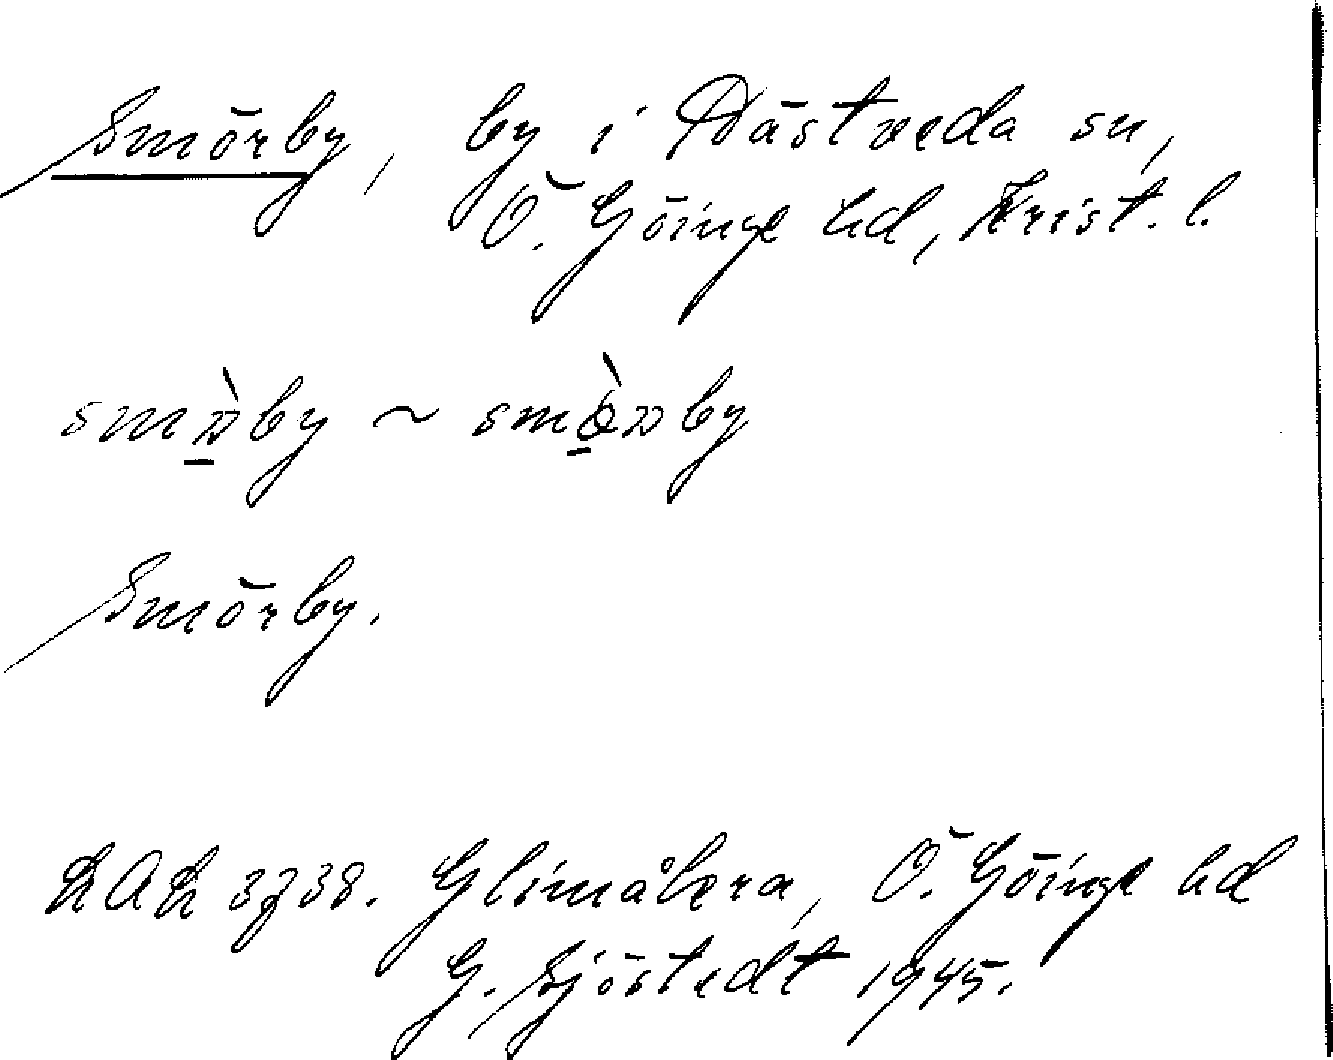 Smörby, by i Hästveda sn,
Ö. Göinge hd, Krist. l.
Smörby.
LAL 3738. Glimåkra, Ö. Göinge hd
G. Sjöstedt 1945.